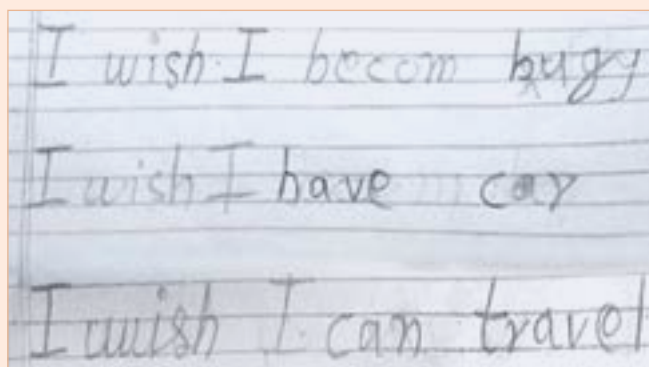 I wish I becom
I wish I have car
I wish I can travel